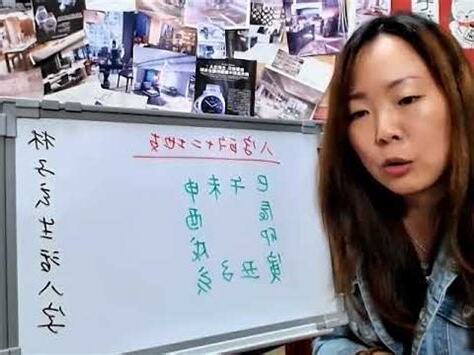 八字的十二地支
巳午未申
辰 酉
卯 戌
寅丑子亥
生活八字